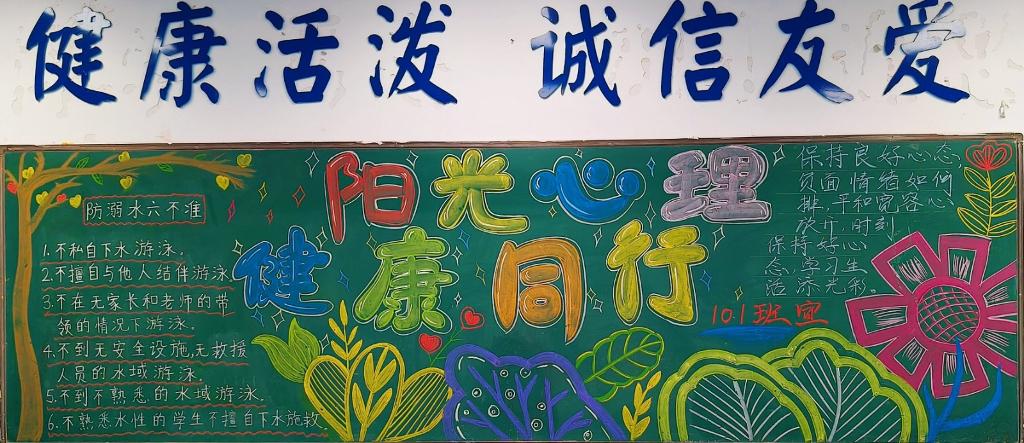 健康活泼 诚信友爱
阳光心理
健康同行
防溺水六不准
1.不私自下水游泳.
2.不擅自与他人结伴游泳
3.不在无家长和老师的带
领的情况下游泳.
4.不到无安全设施,无救援
人员的水域游泳
5.不到不熟悉的水域游泳.
6.不熟悉水性的学生不擅自下水施救.
保持良好心态,
负面情绪如何
排,平和宽容心
放开,时刻
保持好心
态,学习生
活添光彩。
10.1班宣